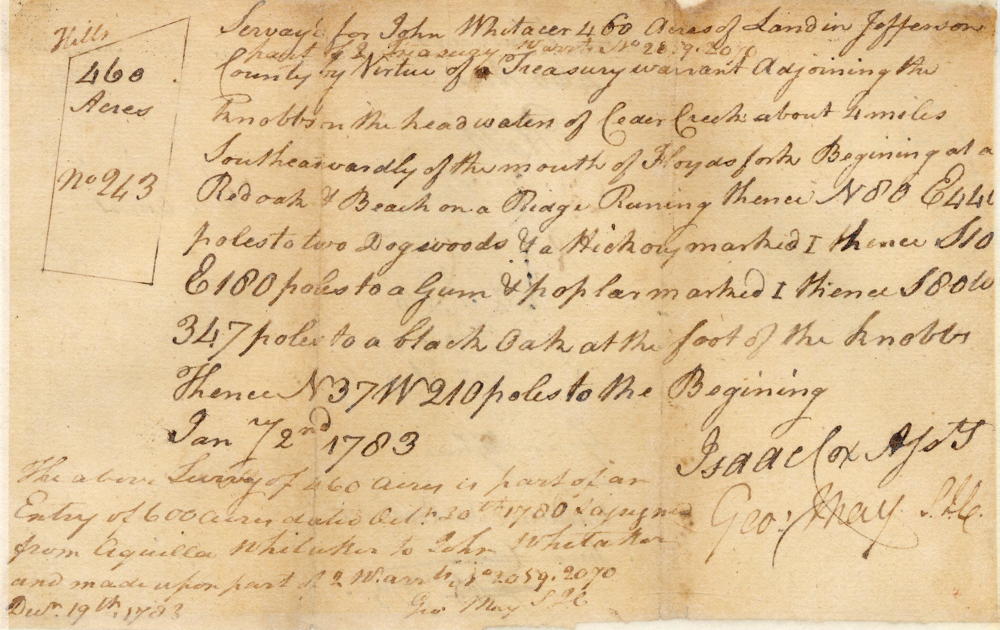 Hills
460
Acres
No 243
Survay'd for John Whitacer 460 Acres of Land in Jefferson
part of 2 Treasury Warrts No 2059.2070
County by Virtue of a Treasury warrant Adjoining the
Knobbs on the head waters of Ceder Creek about 4 miles
Southeawardly of the mouth of Floyds fork Begining at a
Red oak & Beach on a Ridge Runing thence N80 E440
poles to two Dogwoods & a Hickory marked I thence S10
E180 poles to a Gum & poplar marked I thence S80W
347 poles to a black Oak at the foot of the knobbs
Thence N37W 210 poles to the Begining
Jan ry 2nd 1783
Isaac Cox Asst
Geo: May S.J.C.
The above Survey of 460 acres is part of an
Entry of 600 acres dated Octr. 30th 1780 & assigned
from Aquilla Whitaker to John Whitaker
and made upon part of 2 Warrts No 2059.2070
Decr. 19th. 1783
Geo May SJC